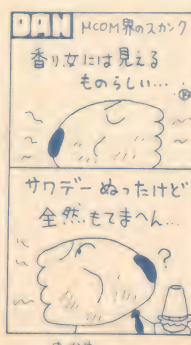 DAN MCOM界のスカンク
香り女には見える
ものらしい…
サワデーぬったけど
全然もてまへん…
?